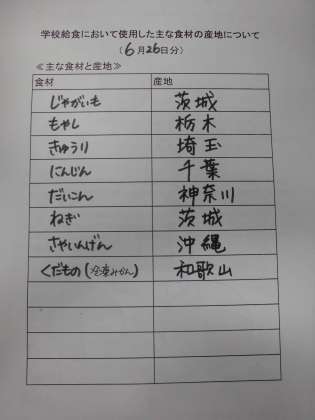 学校給食において使用した主な食材の産地について
(6月26日分)
≪主な食材と産地≫
食材 産地
じゃがいも 茨城
もやし 栃木
きゅうり 埼玉
にんじん 千葉
だいこん 神奈川
ねぎ 茨城
さやいんげん 沖縄
くだもの(冷凍みかん) 和歌山